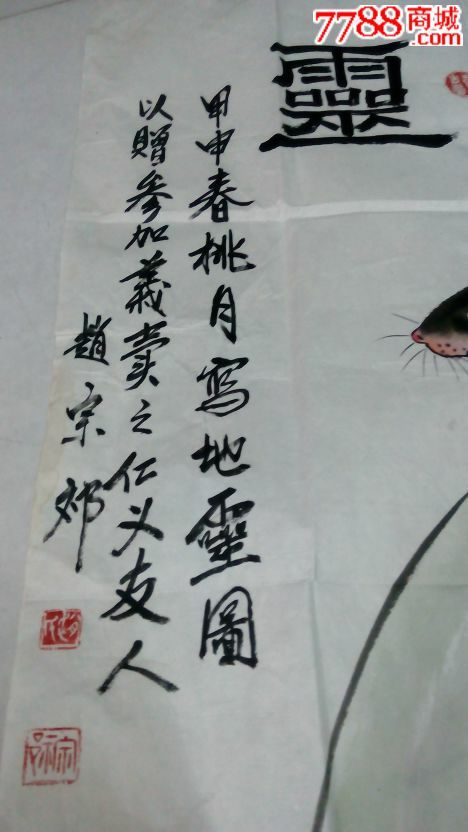 7788商城
靈
甲申春桃月寫地靈圖
以贈參加義賣之仁义友人
趙宗郊